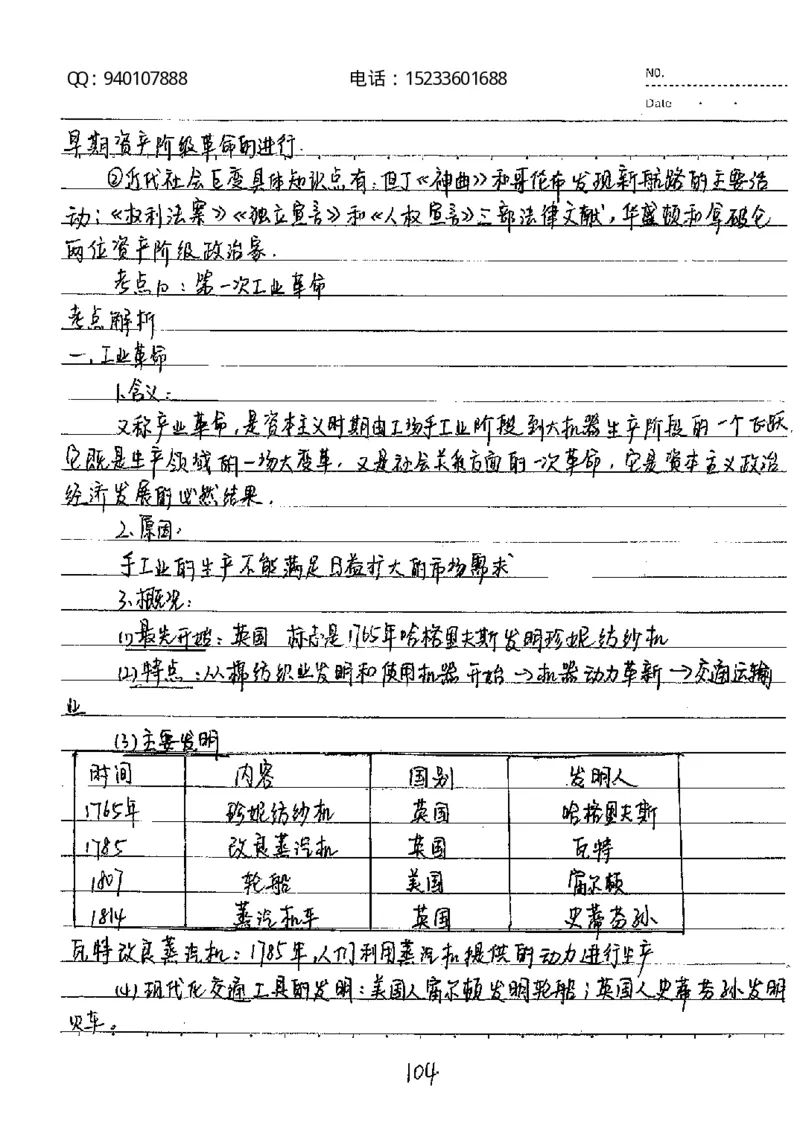 QQ：940107888 电话：15233601688 NO.
Date
早期资产阶级革命的进行.
②近代社会巨变具体知识点有：但丁《神曲》和哥伦布发现新航路的主要活
动；《权利法案》《独立宣言》和《人权宣言》三部法律文献，华盛顿和拿破仑
两位资产阶级政治家.
考点10：第一次工业革命
考点解析
一.工业革命
1.含义：
又称产业革命，是资本主义时期由工场手工业阶段到大机器生产阶段的一个飞跃.
它既是生产领域的一场大变革，又是社会关系方面的一次革命，它是资本主义政治
经济发展的必然结果.
2.原因：
手工业的生产不能满足日益扩大的市场需求
3.概况：
(1)最先开始：英国 标志是1765年哈格里夫斯发明珍妮纺纱机
(2)特点：从棉纺织业发明和使用机器开始→机器动力革新→交通运输
业
(3)主要发明
时间 内容 国别 发明人
1765年 珍妮纺纱机 英国 哈格里夫斯
1785 改良蒸汽机 英国 瓦特
1807 轮船 美国 富尔顿
1814 蒸汽机车 英国 史蒂芬孙
瓦特改良蒸汽机：1785年，人们利用蒸汽机提供的动力进行生产
(4)现代化交通工具的发明：美国人富尔顿发明轮船；英国人史蒂芬孙发明
火车。
104